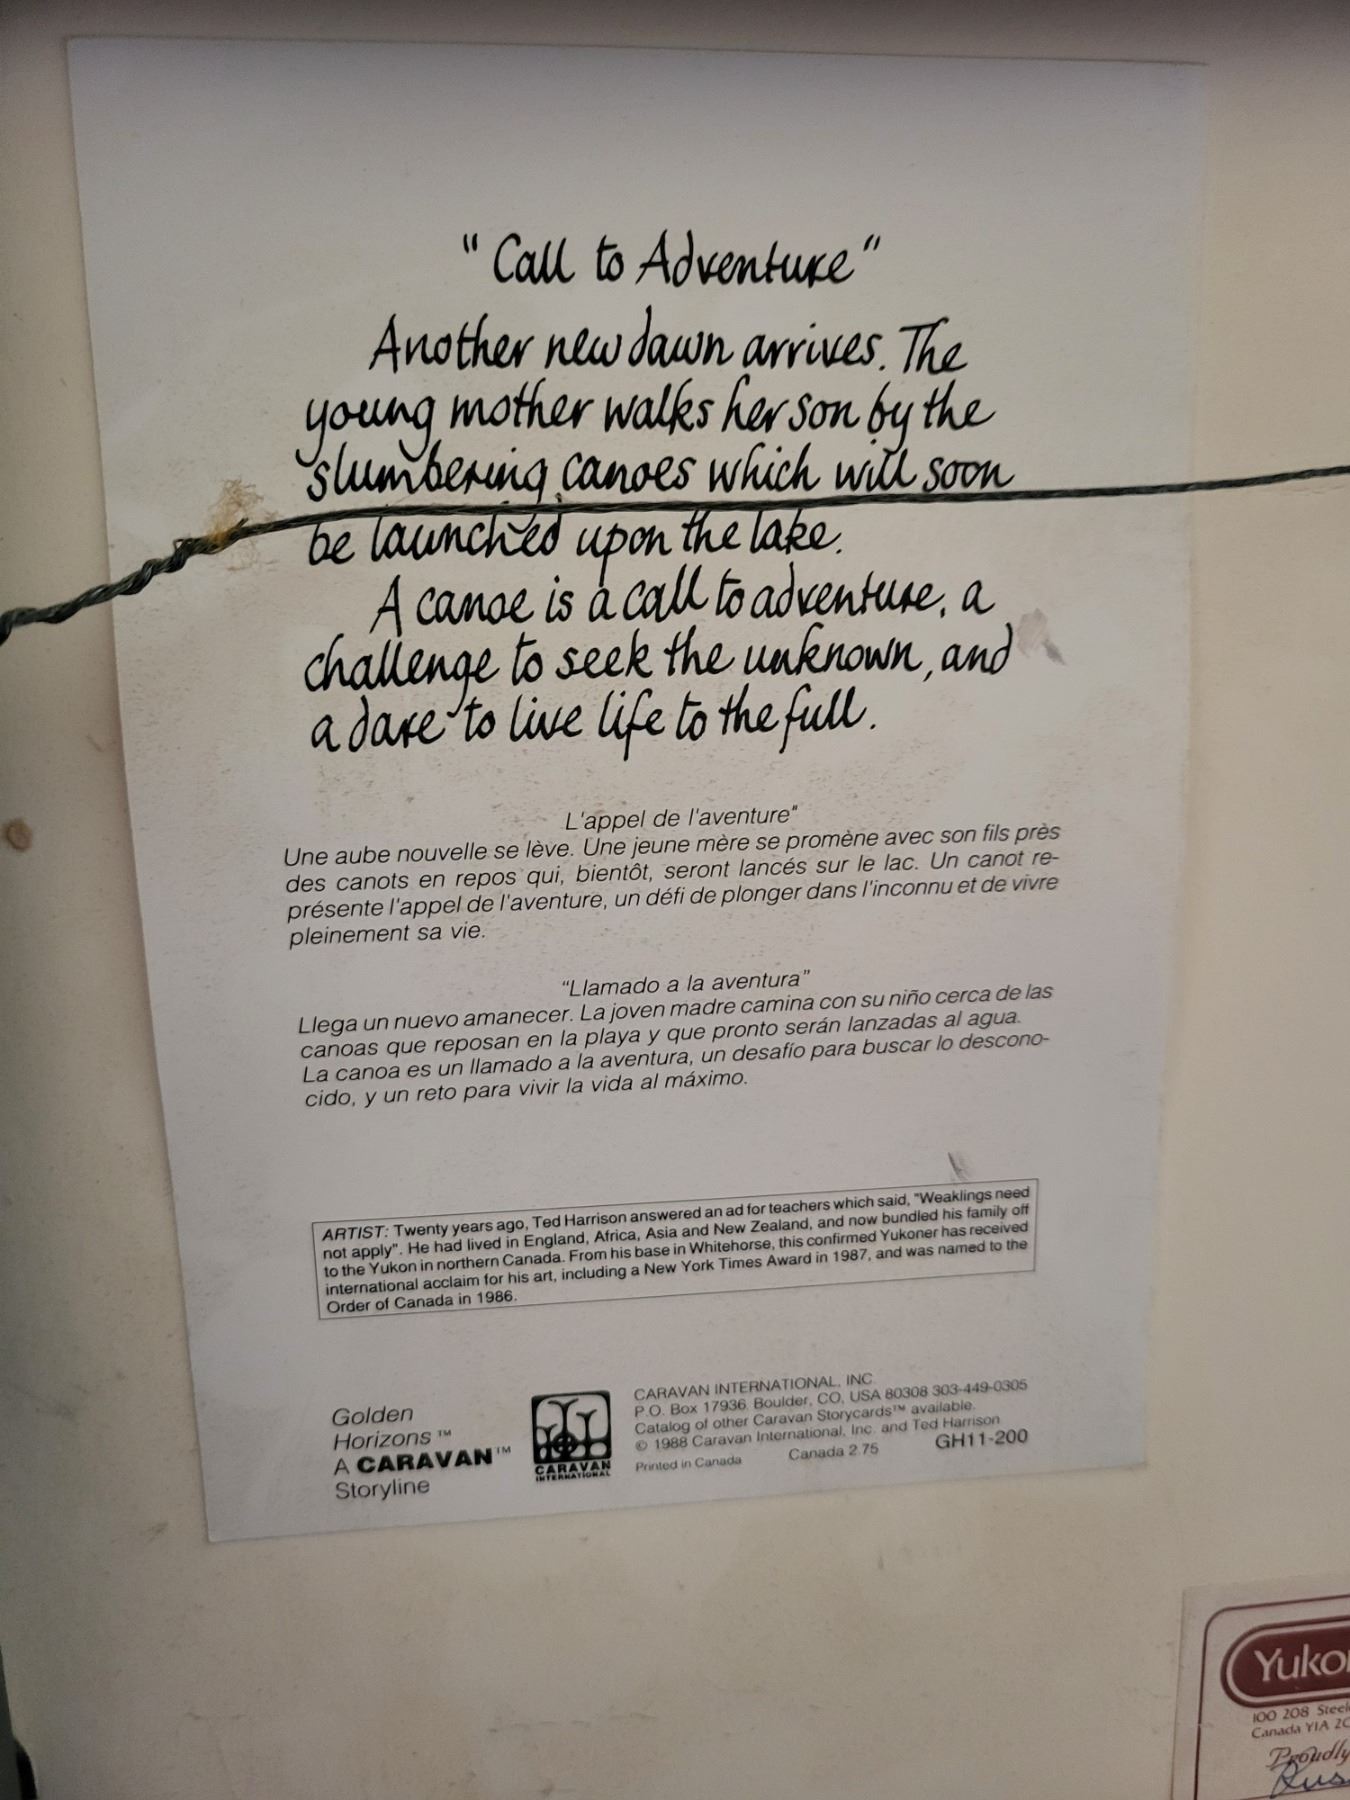 "Call to Adventure"
Another new dawn arrives. The
young mother walks her son by the
slumbering canoes which will soon
be launched upon the lake.
A canoe is a call to adventure, a
challenge to seek the unknown, and
a dare to live life to the full.
L'appel de l'aventure"
Une aube nouvelle se lève. Une jeune mère se promène avec son fils près
des canots en repos qui, bientôt, seront lancés sur le lac. Un canot re-
présente l'appel de l'aventure, un défi de plonger dans l'inconnu et de vivre
pleinement sa vie.
"Llamado a la aventura"
Llega un nuevo amanecer. La joven madre camina con su niño cerca de las
canoas que reposan en la playa y que pronto serán lanzadas al agua.
La canoa es un llamado a la aventura, un desafío para buscar lo descono-
cido, y un reto para vivir la vida al máximo.
ARTIST: Twenty years ago, Ted Harrison answered an ad for teachers which said, "Weaklings need
not apply". He had lived in England, Africa, Asia and New Zealand, and now bundled his family off
to the Yukon in northern Canada. From his base in Whitehorse, this confirmed Yukoner has received
international acclaim for his art, including a New York Times Award in 1987, and was named to the
Order of Canada in 1986.
Golden
Horizons™
A CARAVAN™
Storyline
CARAVAN
INTERNATIONAL
CARAVAN INTERNATIONAL, INC.
P.O. Box 17936, Boulder, CO, USA 80308 303-449-0305
Catalog of other Caravan Storycards™ available.
© 1988 Caravan International, Inc. and Ted Harrison
Printed in Canada Canada 2.75 GH11-200
Yuko
100 208 Steel
Canada Y1A 2
Proudly